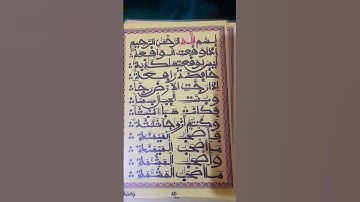 بسم الله الرحمن الرحيم
إذا وقعت الواقعة
ليس لوقعتها كاذبة
خافضة رافعة
إذا رجت الأرض رجا
وبست الجبال بسا
فكانت هباء منبثا
وكنتم أزوجا ثلثة
فأصحب الميمنة
ما أصحب الميمنة
وأصحب المشئمة
ما أصحب المشئمة